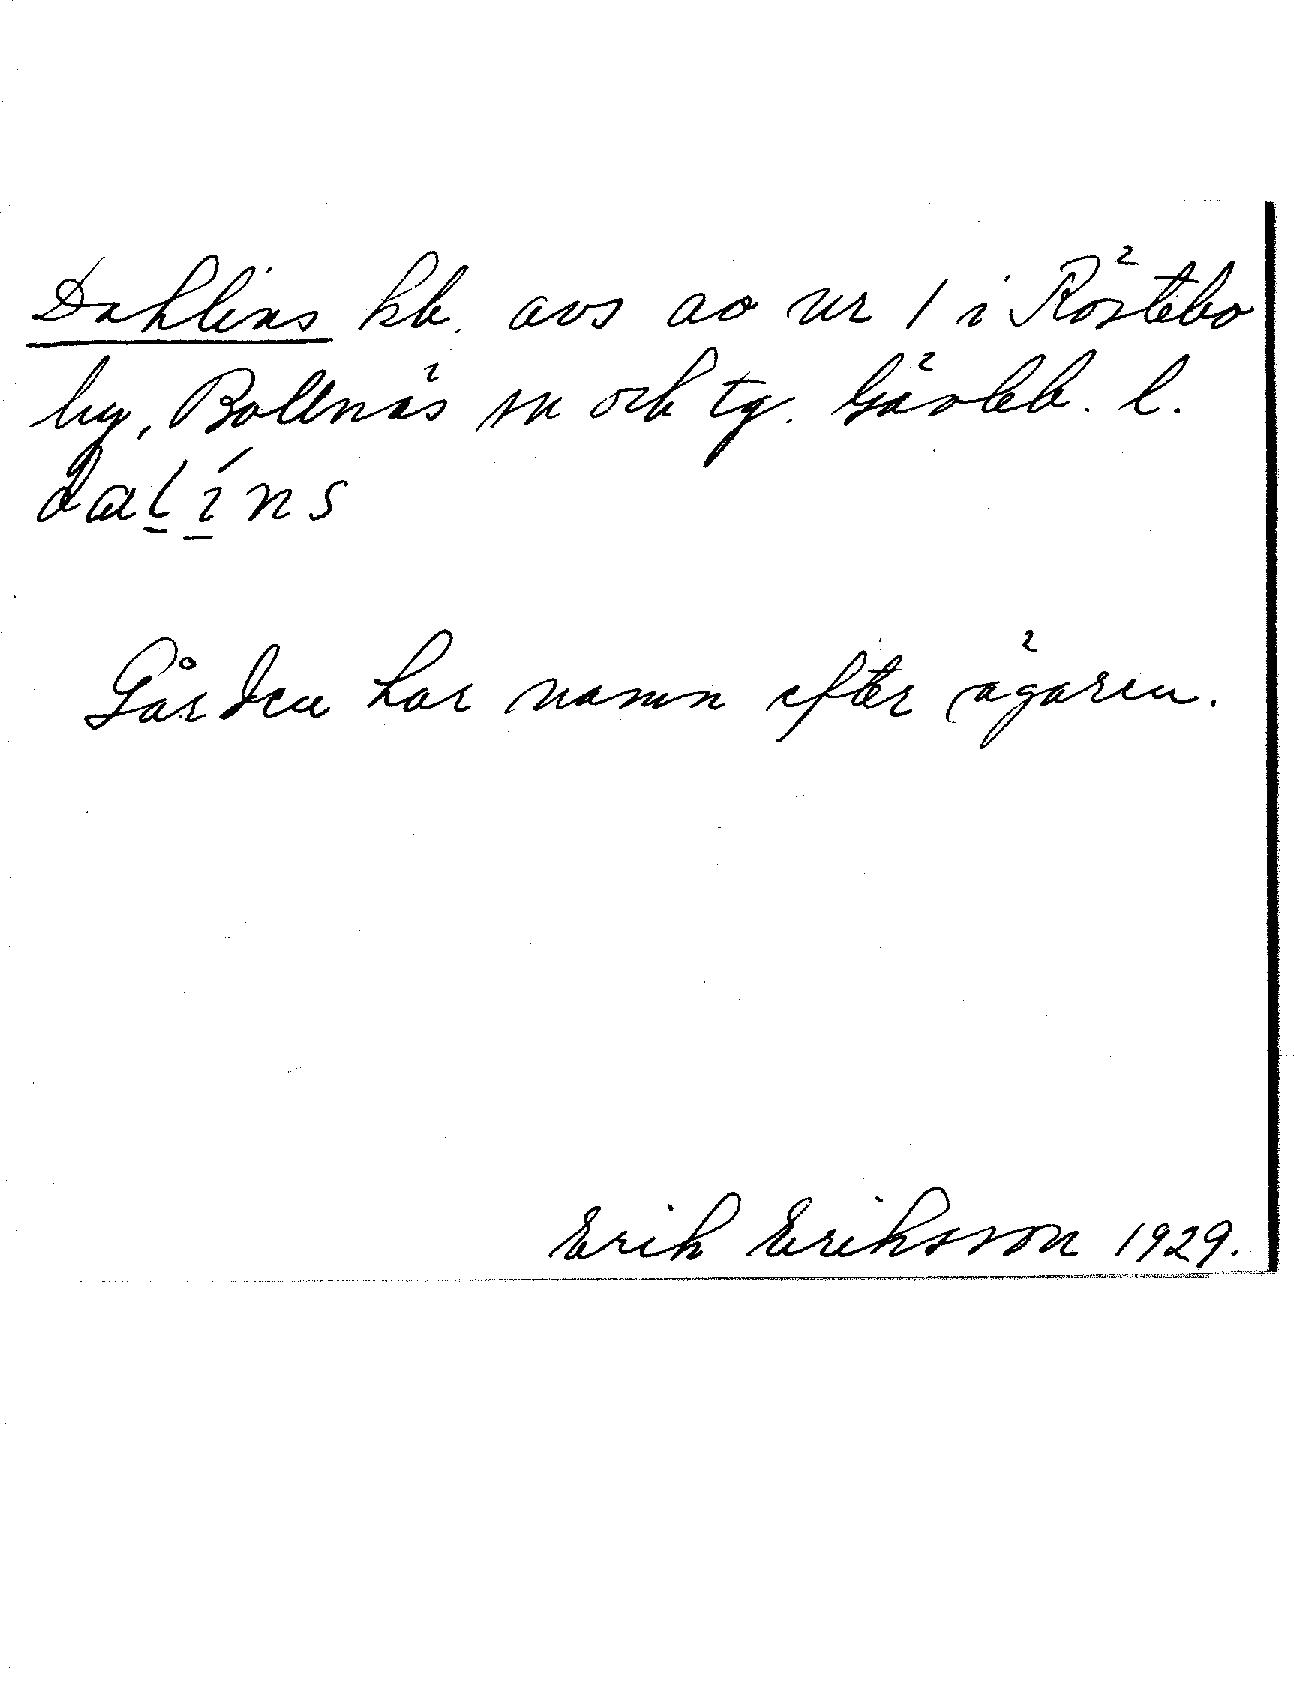 Dahlins hb. avs ao nr 1 i Röstebo
by, Bollnäs sn och tg. Gävleb. l.
dalíns
Gården har namn efter ägaren.
Erik Eriksson 1929.